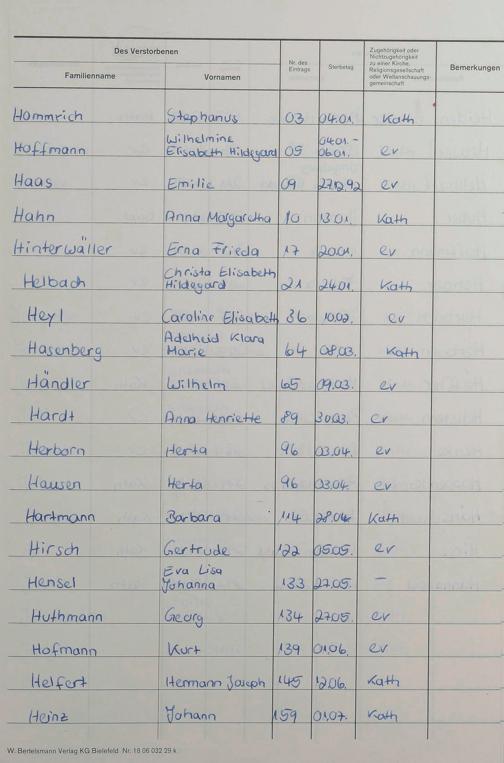 Des Verstorbenen
Familienname
Vornamen
Nr. des
Eintrags
Sterbetag
Zugehörigkeit oder
Nichtzugehörigkeit
zu einer Kirche,
Religionsgesellschaft
oder Weltanschauungs-
gemeinschaft
Bemerkungen
Hommrich Stephanus 03 04.01. Kath
Hoffmann Wilhelmine Elisabeth Hildegard 05 04.01. - 06.01. ev
Haas Emilie 09 27.12.92 ev
Hahn Anna Margaretha 10 13.01. Kath
Hinterwäller Erna Frieda 17 20.01. ev
Helbach Christa Elisabeth Hildegard 21 24.01. Kath
Heyl Caroline Elisabeth 36 10.02. ev
Hasenberg Adelheid Klara Marie 64 08.03. Kath
Händler Wilhelm 65 09.03. ev
Hardt Anna Henriette 89 30.03. ev
Herborn Herta 96 03.04. ev
Hausen Herta 96 03.04. ev
Hartmann Barbara 114 28.04. Kath
Hirsch Gertrude 122 05.05. ev
Hensel Eva Lisa Johanna 133 27.05. –
Huthmann Georg 134 27.05. ev
Hofmann Kurt 139 01.06. ev
Helfert Hermann Joseph 145 12.06. Kath
Heinz Johann 159 01.07. Kath
W. Bertelsmann Verlag KG Bielefeld Nr. 18 06 032 29 k